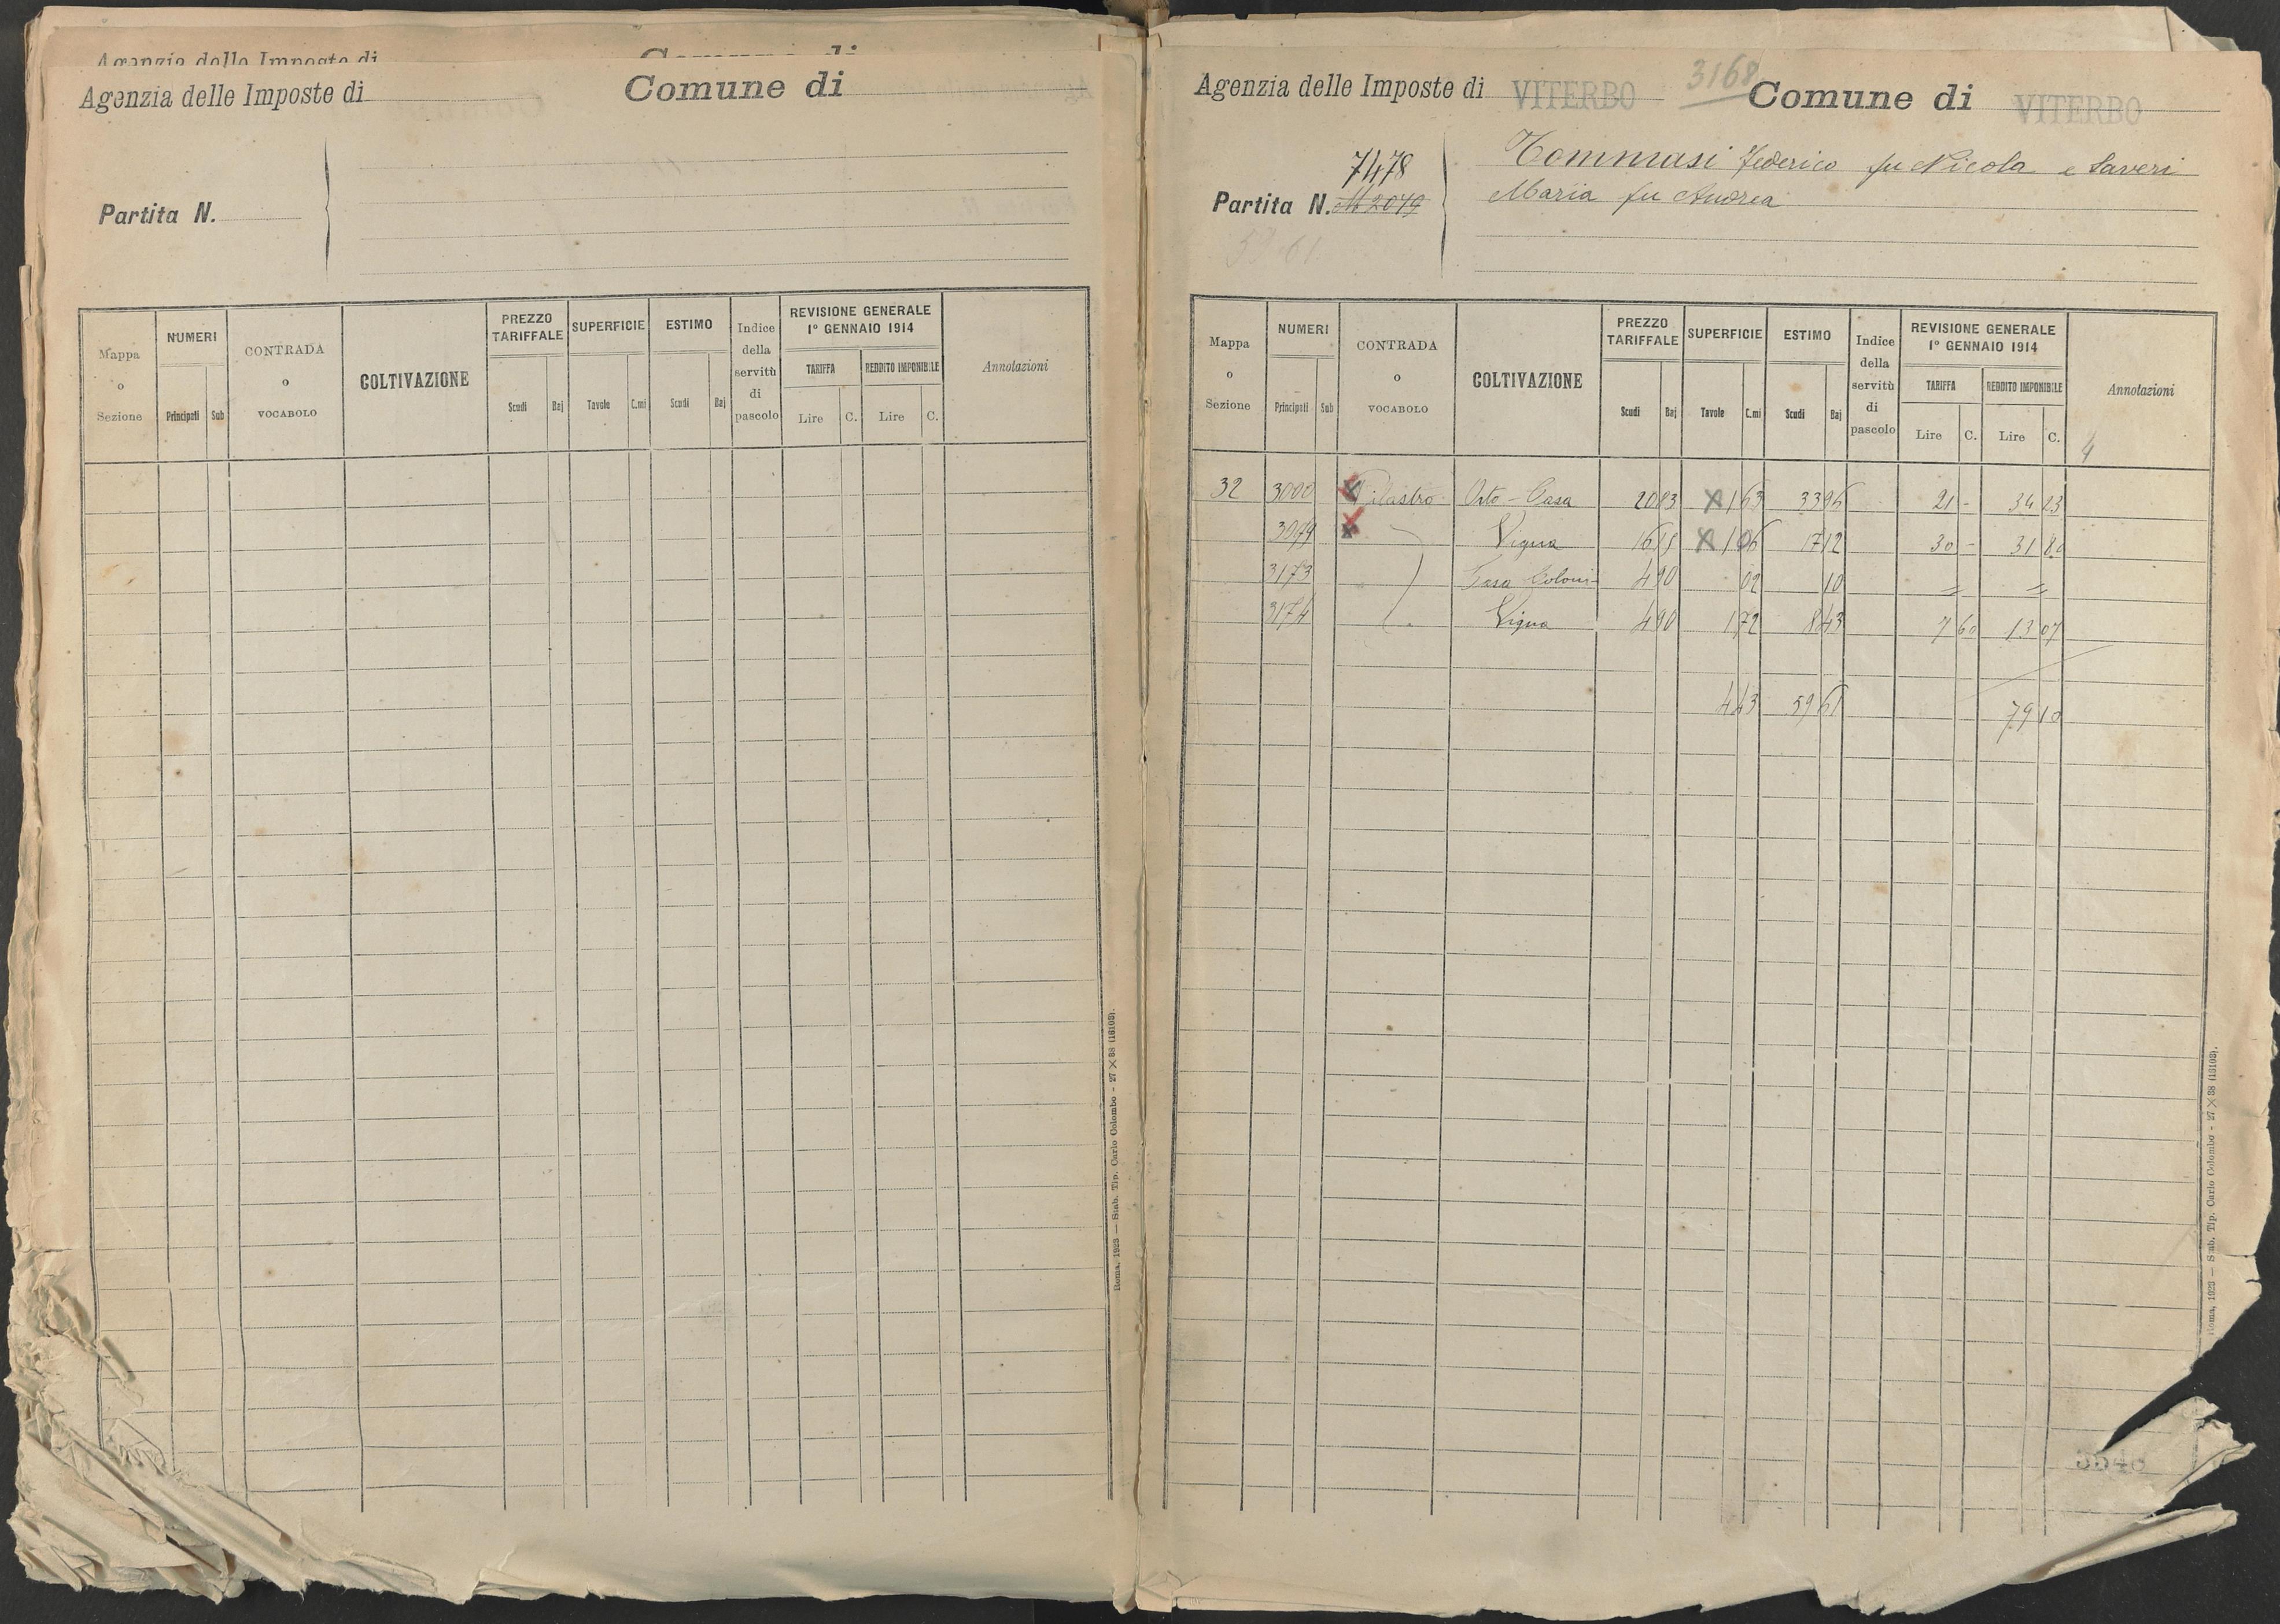 Agenzia delle Imposte di
Agenzia delle Imposte di Comune di
Partita N.
Mappa o Sezione NUMERI Principali Sub CONTRADA o VOCABOLO COLTIVAZIONE PREZZO TARIFFALE Scudi Baj SUPERFICIE Tavole C.mi ESTIMO Scudi Baj Indice della servitù di pascolo REVISIONE GENERALE 1° GENNAIO 1914 TARIFFA Lire C. REDDITO IMPONIBILE Lire C. Annotazioni
Roma, 1923 — Stab. Tip. Carlo Colombo - 27 X 38 (16103).
3168
Agenzia delle Imposte di VITERBO Comune di VITERBO
7478
Partita N. 2079
Tommasi Federico fu Nicola e Saveri
Maria fu Andrea
Mappa o Sezione NUMERI Principali Sub CONTRADA o VOCABOLO COLTIVAZIONE PREZZO TARIFFALE Scudi Baj SUPERFICIE Tavole C.mi ESTIMO Scudi Baj Indice della servitù di pascolo REVISIONE GENERALE 1° GENNAIO 1914 TARIFFA Lire C. REDDITO IMPONIBILE Lire C. Annotazioni
4
32 3000 Pilastro Orto - Casa 20 83 X 1 63 33 96 21 - 34 23
3099 Vigna 16 15 X 1 06 17 12 30 - 31 80
3173 Casa Coloni- 4 90 02 10 = =
3174 Vigna 4 90 1 72 8 43 7 60 13 07
4 43 59 61 79 10
Roma, 1923 — Stab. Tip. Carlo Colombo - 27 X 38 (16103).